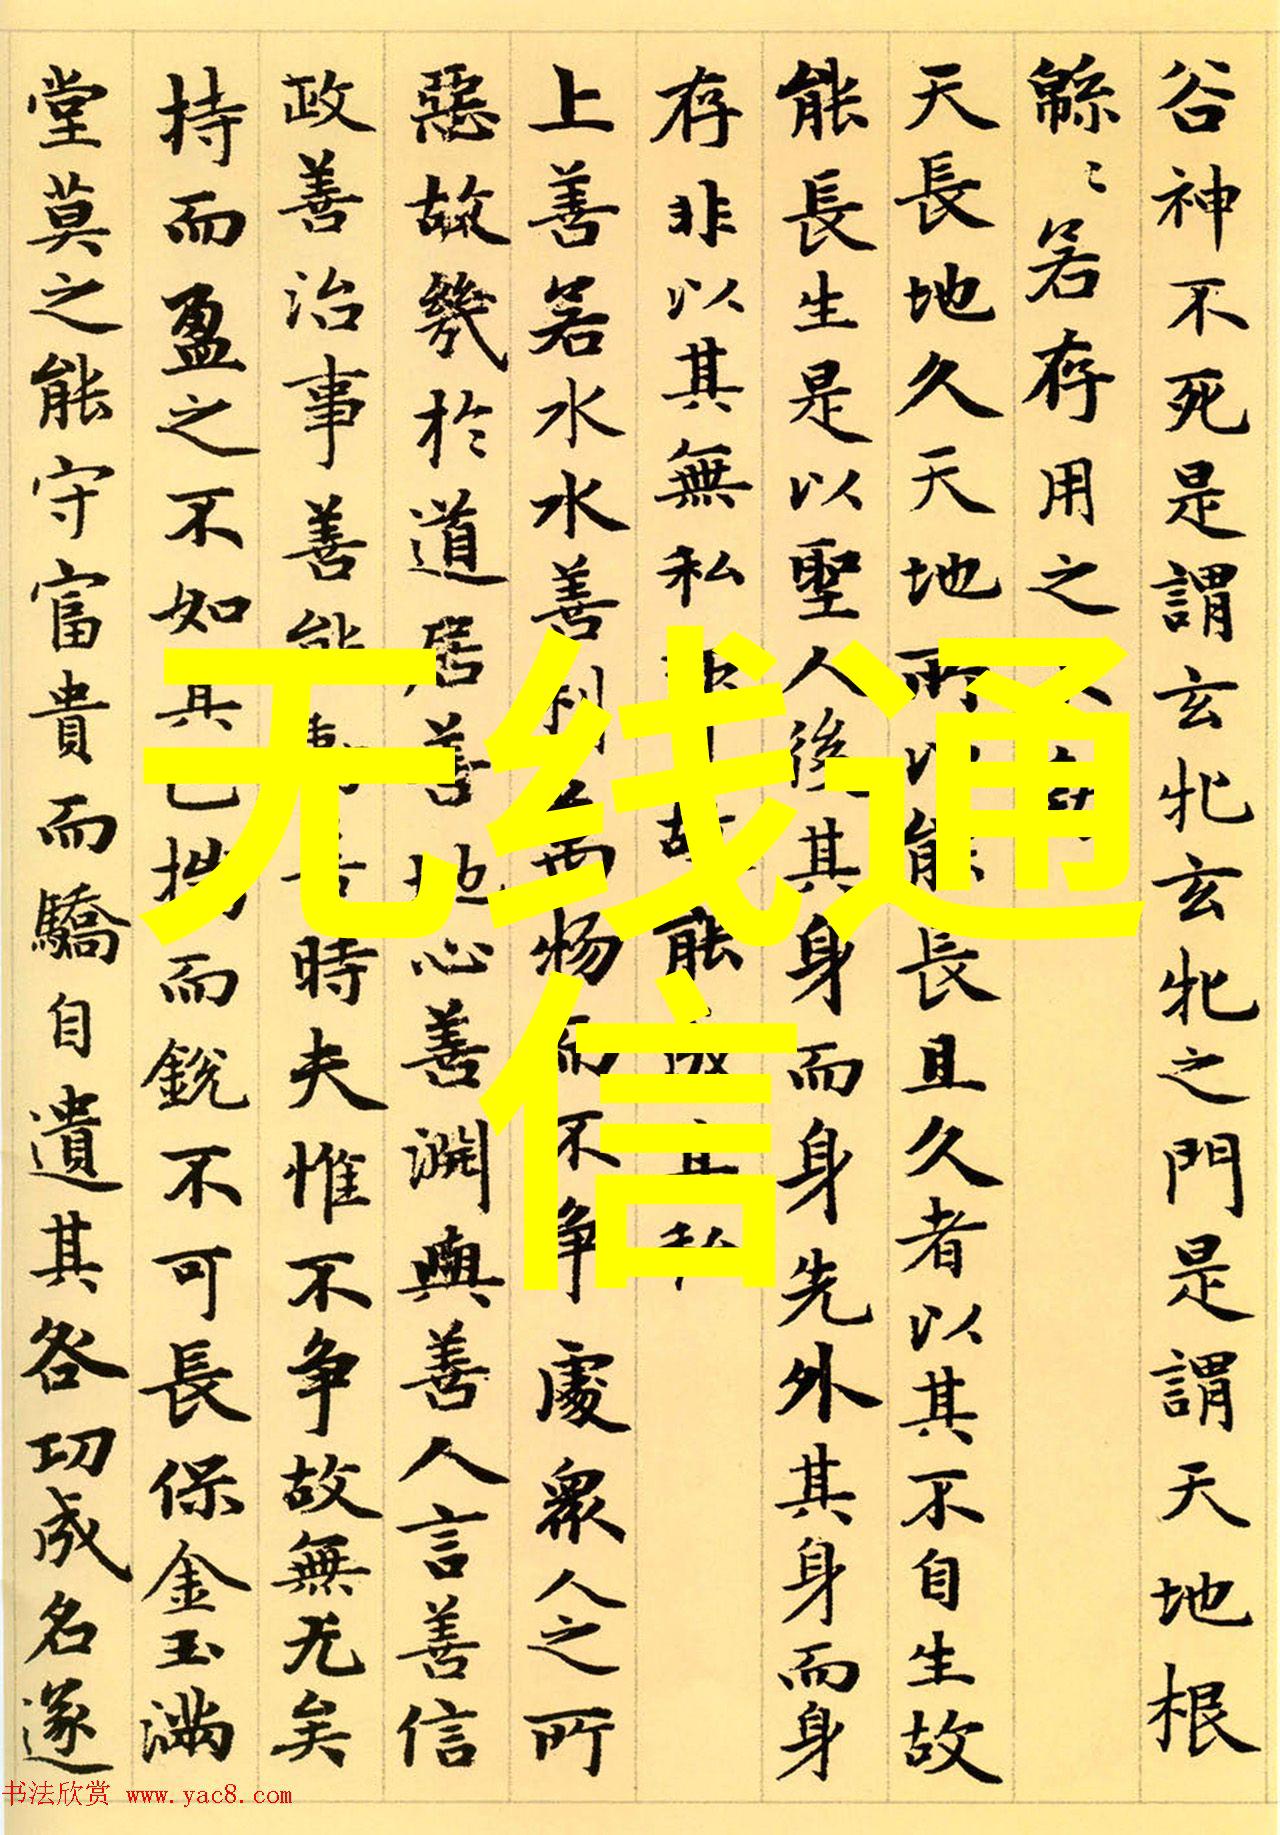 谷神不死是謂玄牝玄牝之門是謂天地根
緜〻若存用之
天長地久天地所以能長且久者以其不自生故
能長生是以聖人後其身而身先外其身而身
存非以其無私故能成其私
上善若水水善利物而不争處衆人之所
惡故幾於道居善地心善淵與善人言善信
政善治事善能善時夫惟不争故無尤矣
持而盈之不如其已揣而銳不可長保金玉滿
堂莫之能守富貴而驕自遺其咎功成名遂
无线通
信
书法欣赏 www.yac8.com